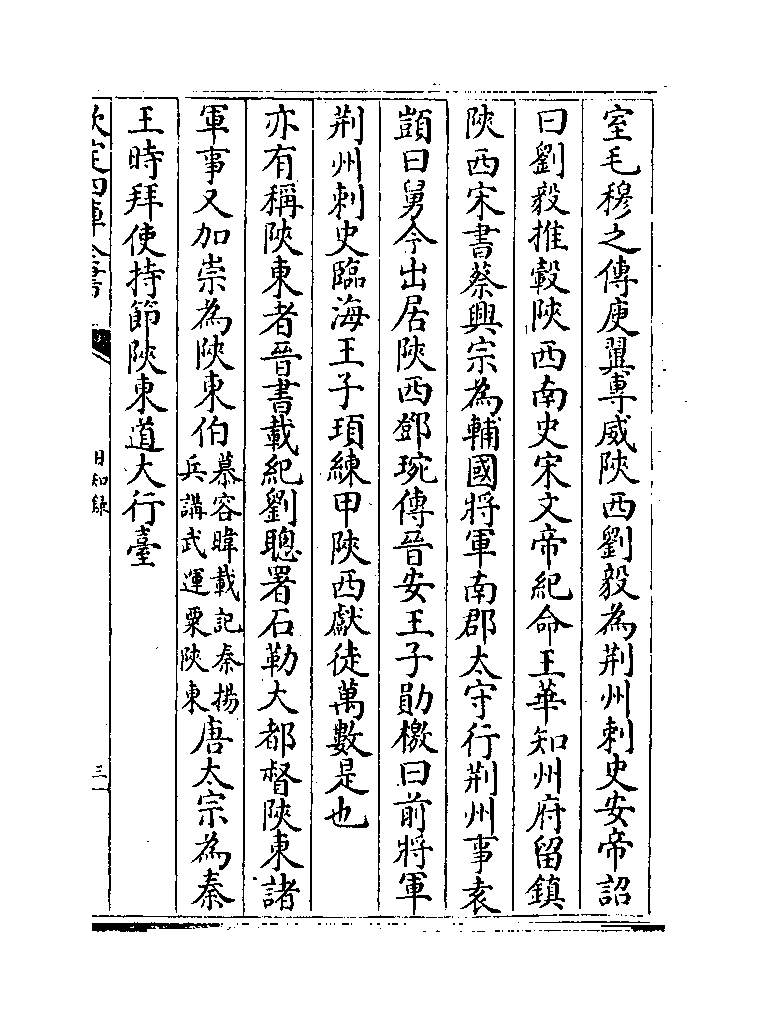 室毛穆之傳庾翼專威陝西劉毅為荆州刺史安帝詔
曰劉毅推轂陝西南史宋文帝紀命王華知州府留鎮
陝西宋書蔡興宗為輔國將軍南郡太守行荆州事袁
顗曰舅今出居陝西鄧琬傳晉安王子勛檄曰前將軍
荆州刺史臨海王子頊練甲陝西獻徒萬數是也
亦有稱陝東者晉書載紀劉聰署石勒大都督陝東諸
軍事又加崇為陝東伯慕容暐載記秦揚兵講武運粟陝東唐太宗為秦
王時拜使持節陝東道大行臺
欽定四庫全書
日知録
三一